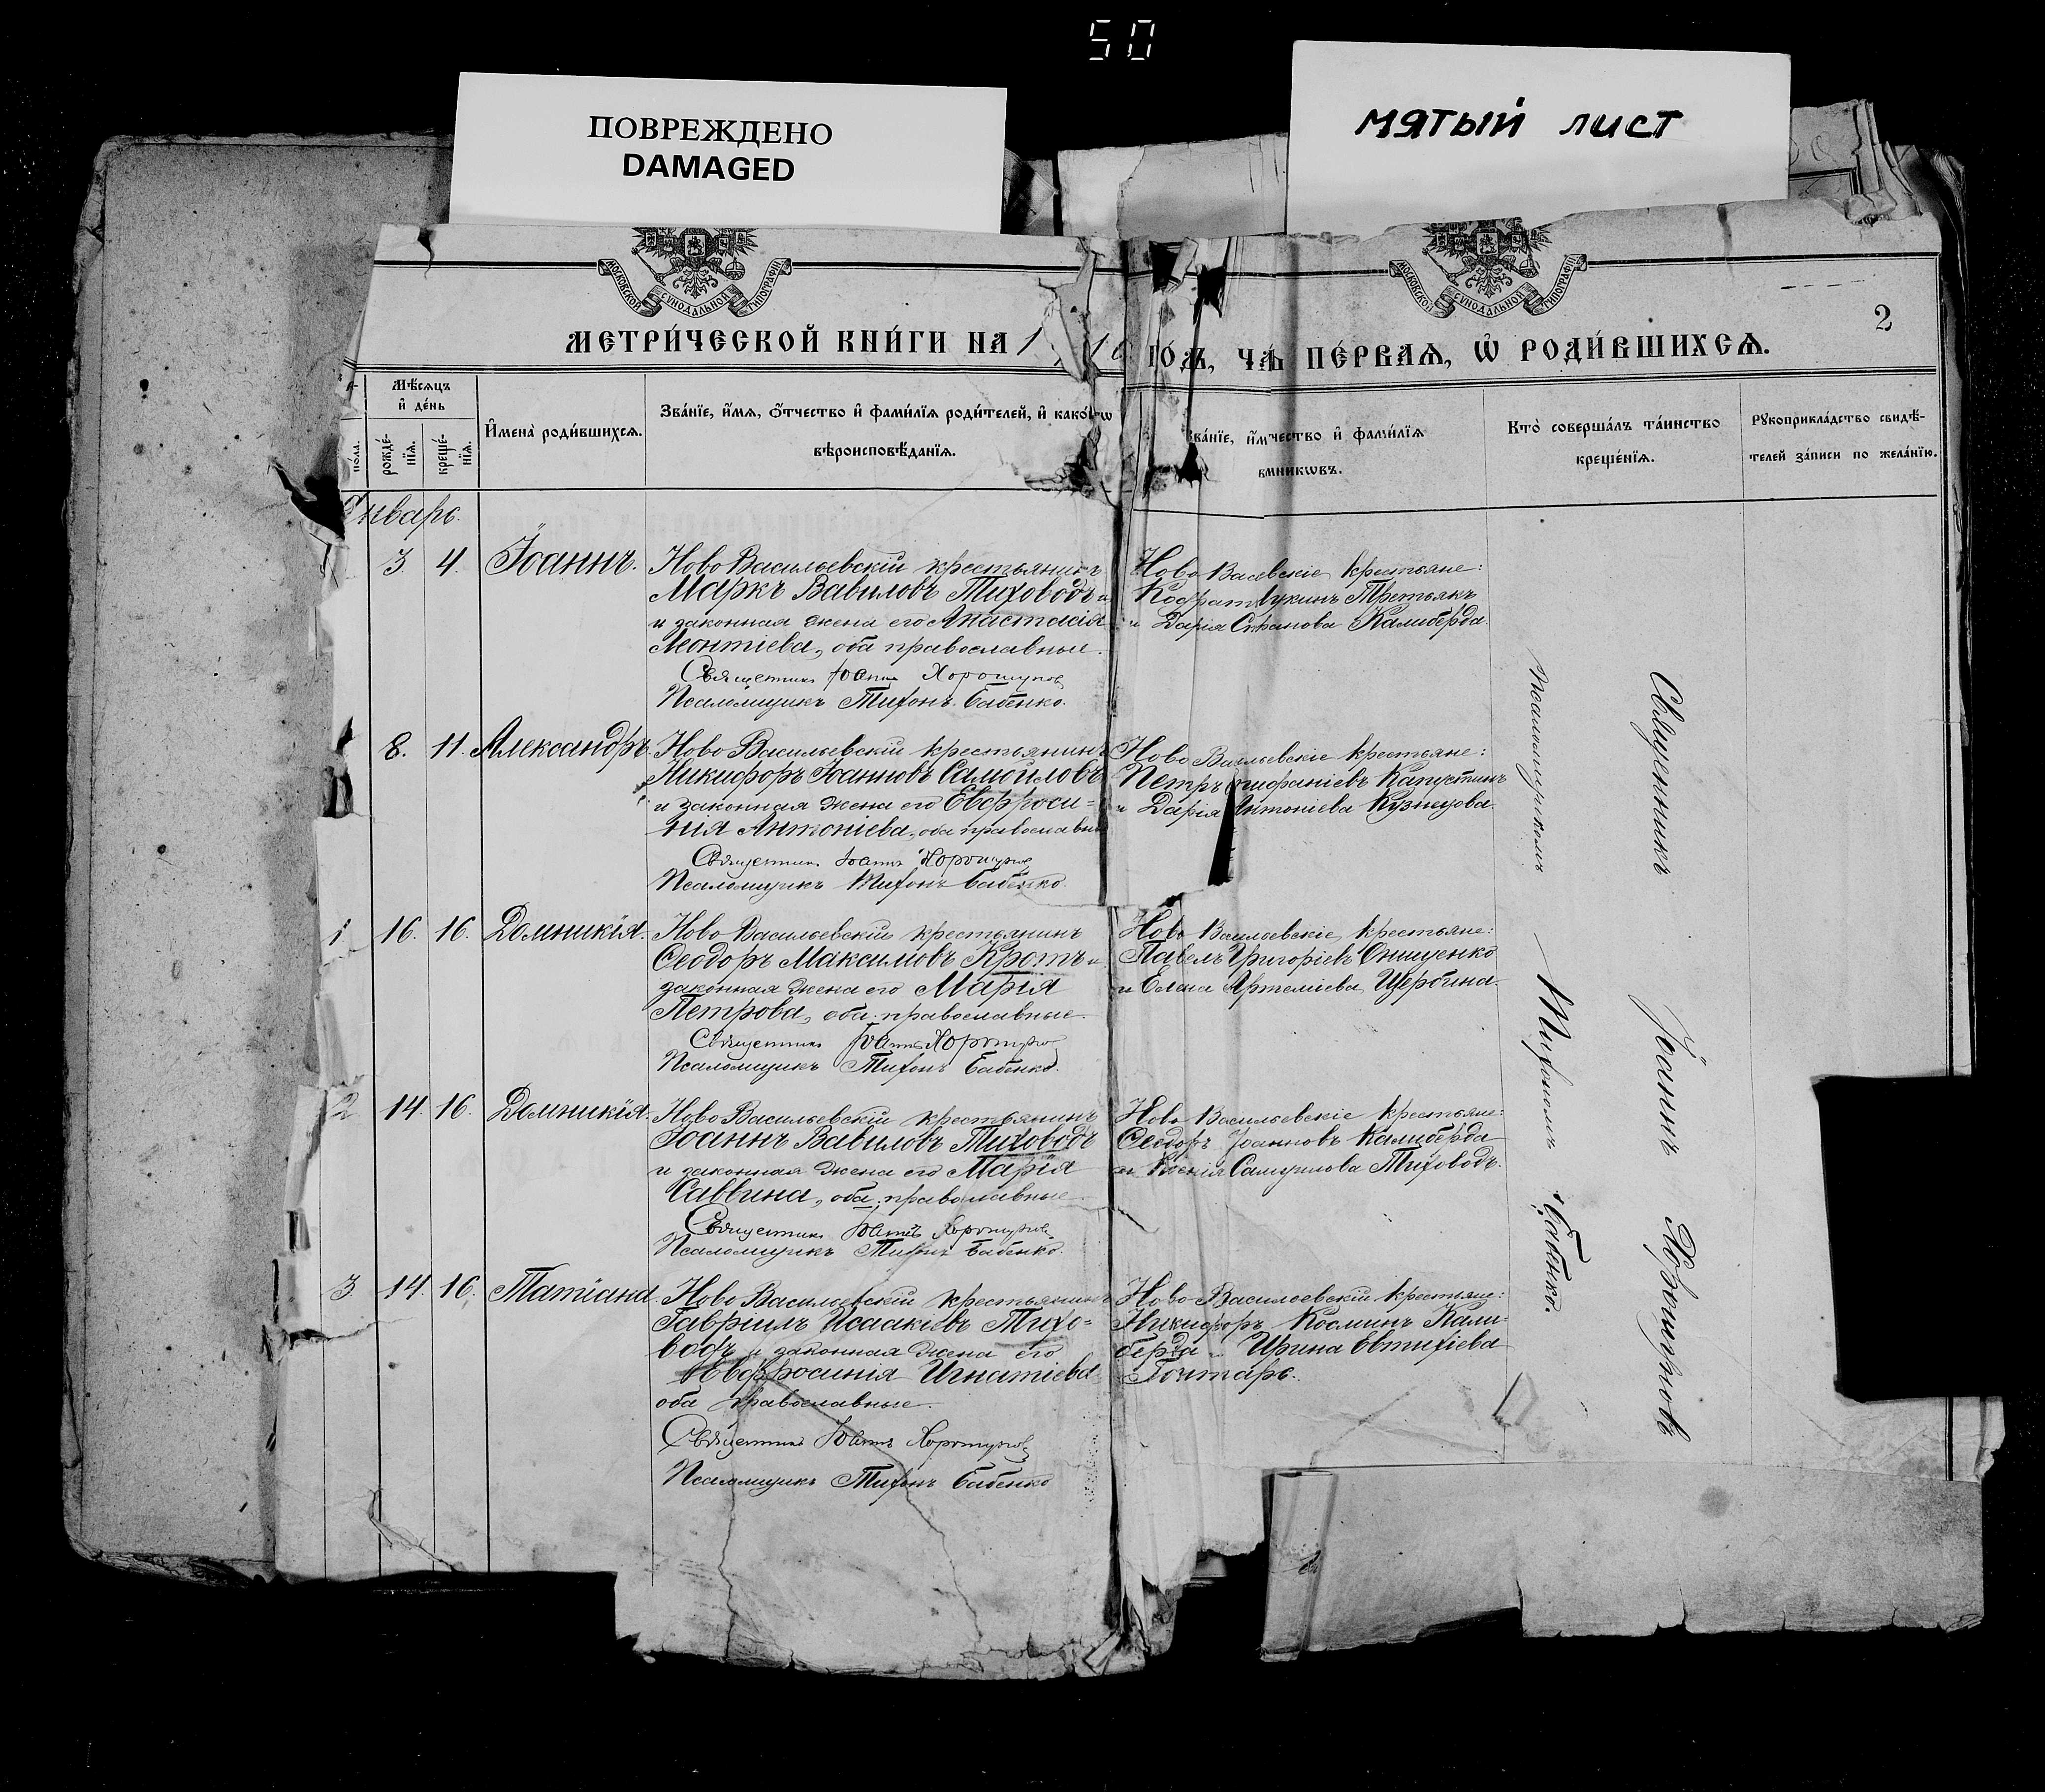 50
ПОВРЕЖДЕНО
DAMAGED
мятый лист
МОСКОВСКОЙ СѴНОДАЛЬНОЙ ТИПОГРАФІИ
МОСКОВСКОЙ СѴНОДАЛЬНОЙ ТИПОГРАФІИ
2
МЕТРИ́ЧЕСКОЙ КНИ́ГИ НА 1
ГО́ДЪ, ЧА́ ПЕ́РВАѦ, Ѡ҆ РОДИ́ВШИХСѦ.
Мѣ́сѧцъ
и҆ де́нь
по́ла.
рожде́-
нїѧ.
креще́-
нїѧ.
И҆мена̀ роди́вшихсѧ.
Зва́нїе, и҆́мѧ, ѻ҆́тчество и҆ фами́лїѧ роди́телей, и҆ како́гѡ
вѣроисповѣ́данїѧ.
зва́нїе, и҆́м чество и҆ фами́лїѧ
никѡвъ.
Кто̀ соверша́лъ та́инство
креще́нїѧ.
Рꙋкоприкла́дство свидѣ́-
телей за́писи по жела́нїю.
Январь.
3. 4. Іоаннъ.
Ново Васильевскій крестьянинъ
Маркъ Вавиловъ Тиховодъ и
и законная жена его Анастасія
Леонтіева, оба православные.
Священникъ Іоаннъ Хорошунов
Псаломщикъ Тихонъ Бабенко.
Ново Васевскіе крестьяне:
Кодрат Лукинъ Третьякъ
и Дарія Сфанова Калиберда.
8. 11. Александръ.
Ново Васильевскій крестьянинъ
Никифоръ Іоанновъ Самойловъ
и законная жена его Евфроси-
нія Антоніева, оба православн
Священникъ Іоаннъ Хорошунов
Псаломщикъ Тихонъ Бабенко.
Ново Васильевскіе крестьяне:
Петръ пифаніевъ Капустинъ
и Дарія Антоніева Кузнецова.
1 16. 16. Домникія.
Ново Васильевскій крестьянинъ
Ѳеодоръ Максимовъ Кротъ и
законная жена его Марія
Петрова, оба православные.
Священникъ Іоаннъ Хорошунов
Псаломщикъ Тихонъ Бабенко.
Ново Васильевскіе крестьяне:
Павелъ Григоріевъ Онищенко
и Елена Артеміева Щербина.
2 14. 16. Домникія.
Ново Васильевскій крестьянинъ
Іоаннъ Вавиловъ Тиховодъ
и законная жена его Марія
Саввина, оба православные.
Священникъ Іоаннъ Хорошунов
Псаломщикъ Тихонъ Бабенко.
Ново Васильевскіе крестьяне:
Ѳеодоръ Іоанновъ Калиберда
и Ксенія Самуилова Тиховодъ.
3. 14. 16. Татіана.
Ново Васильевскій крестьянинъ
Гавріилъ Исаакіевъ Тихо-
водъ и законная жена его
Евфросинія Игнатіева
оба православные.
Священникъ Іоаннъ Хорошунов
Псаломщикъ Тихонъ Бабенко
Ново Васильевскій крестьяне:
Никифоръ Косминъ Кали-
берда и Ирина Евтихіева
Гонтарь.
Священникъ Іоаннъ Хорошунов
псаломщикомъ Тихономъ Бабенко.